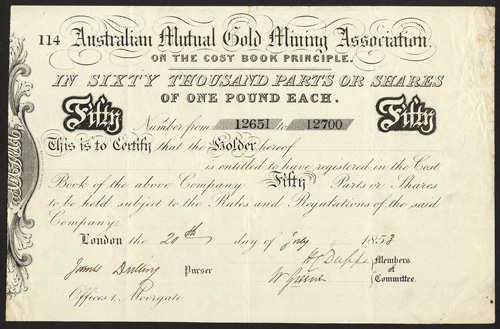 114 Australian Mutual Gold Mining Association.
ON THE COST BOOK PRINCIPLE.
IN SIXTY THOUSAND PARTS OR SHARES
OF ONE POUND EACH.
Fifty Fifty
Number from 12651 to 12700
This is to Certify that the Holder hereof
is entitled to have registered in the Cost
Book of the above Company Fifty Parts or Shares
to be held subject to the Rules and Regulations of the said
Company.
London the 20th day of July 1853
James Purser
Members of Committee.
Offices 1, Moorgate.